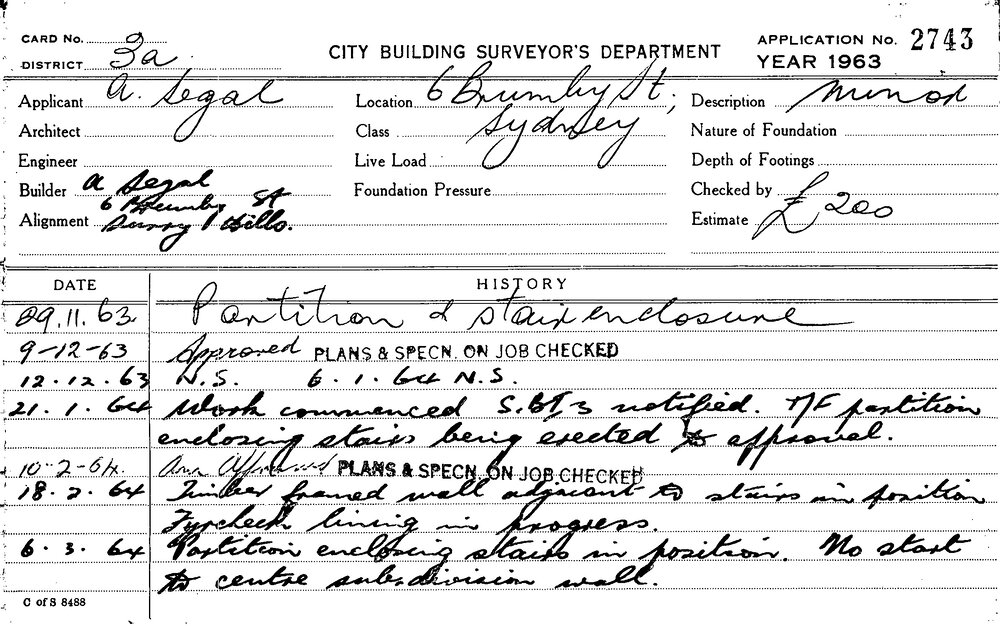 CARD No.
DISTRICT 3a
CITY BUILDING SURVEYOR'S DEPARTMENT
APPLICATION No. 2743
YEAR 1963
Applicant A. Segal
Location 6 Brumby St,
Sydney
Description Minor
Architect
Class
Nature of Foundation
Engineer
Live Load
Depth of Footings
Builder A Segal
6 Brumby St
Surry Hills.
Foundation Pressure
Checked by
Alignment
Estimate £200
DATE HISTORY
29.11.63 Partition & stair enclosure
9-12-63 Approved PLANS & SPECN. ON JOB CHECKED
12.12.63 N.S. 6.1.64 N.S.
21.1.64 Work commenced S.B.I 3 notified. T/F partition
enclosing stairs being erected to approval.
10-2-64. Approved PLANS & SPECN. ON JOB CHECKED
18.2.64 Timber framed wall adjacent to stairs in position
Fyrcheck lining in progress.
6.3.64 Partition enclosing stairs in position. No start
to centre subdivision wall.
C of S 8488